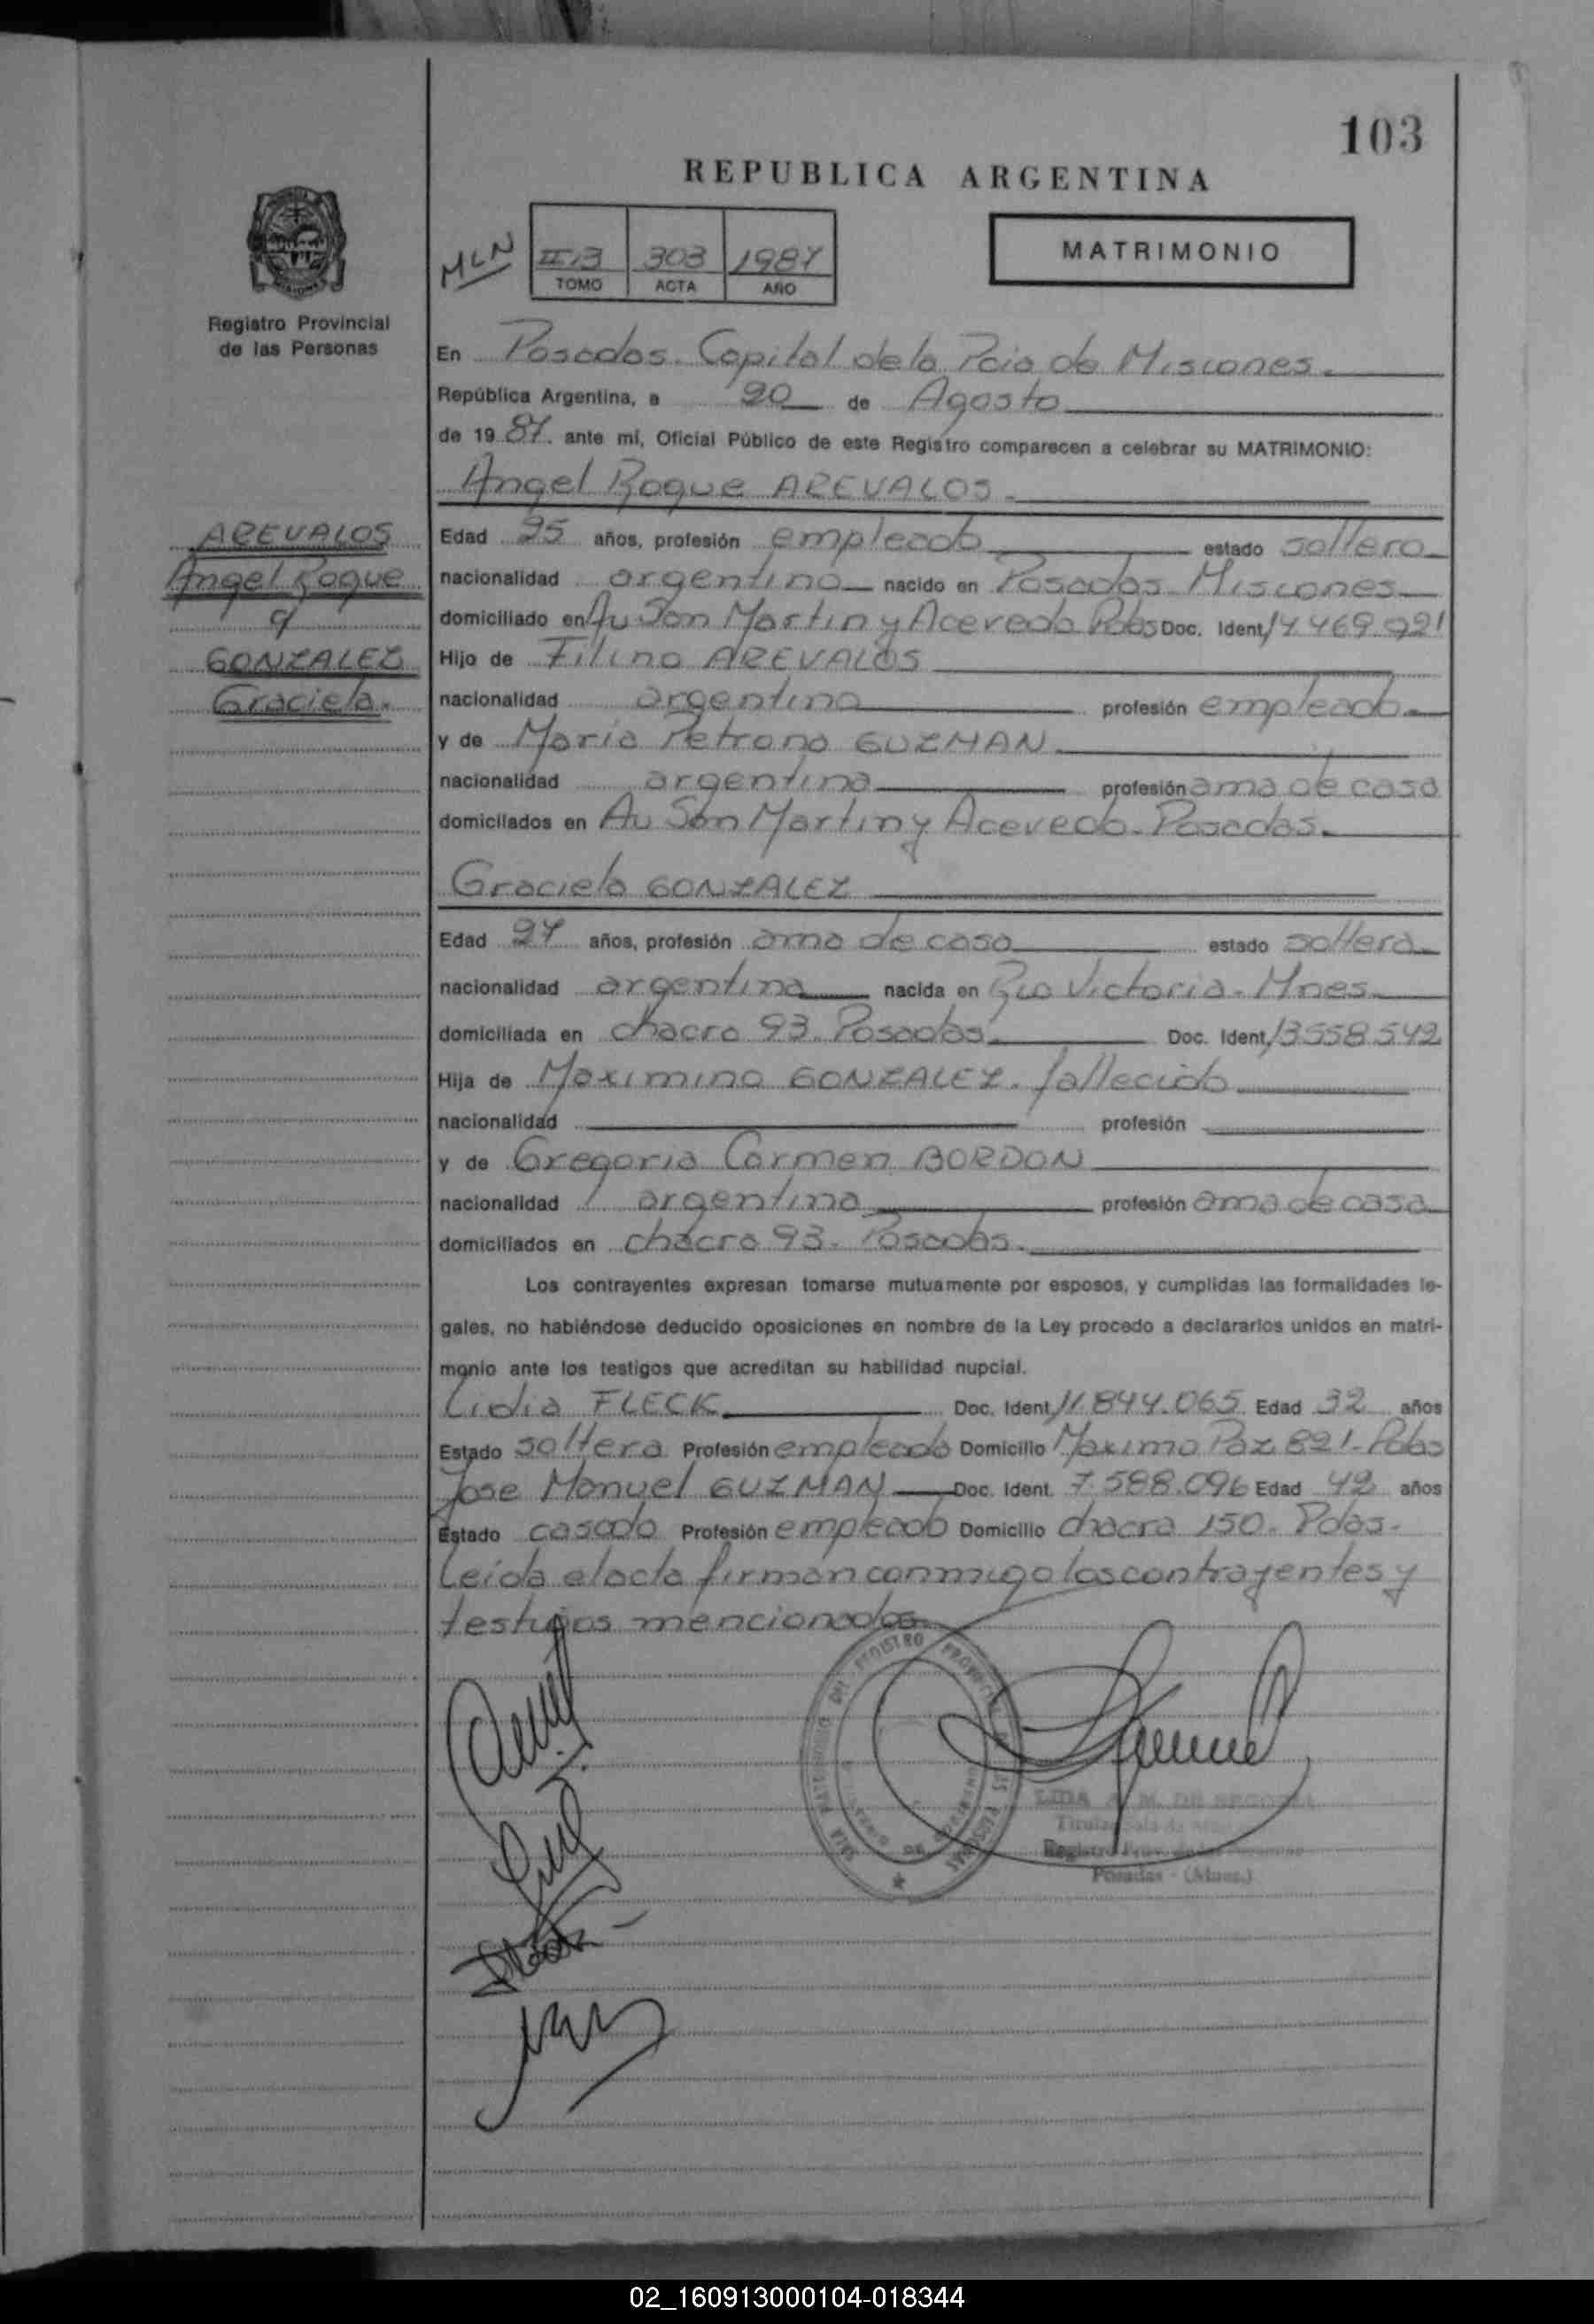 103
REPUBLICA ARGENTINA
MLN
303 1987
TOMO ACTA AÑO
MATRIMONIO
Registro Provincial
de las Personas
En Posadas. Capital de la Pcia de Misiones.
República Argentina, a 20 de Agosto
de 19 87. ante mí, Oficial Público de este Registro comparecen a celebrar su MATRIMONIO:
Angel Roque AREVALOS.
AREVALOS
Angel Roque
y
GONZALEZ
Graciela.
Edad 25 años, profesión empleado estado soltero
nacionalidad argentino nacido en Posadas Misiones
domiciliado en Av San Martin y Acevedo Pdas Doc. Ident. 14.469.921
Hijo de Filino AREVALOS
nacionalidad argentino profesión empleado
y de Maria Petrona GUZMAN
nacionalidad argentina profesión ama de casa
domiciliados en Av San Martin y Acevedo. Posadas.
Graciela GONZALEZ
Edad 27 años, profesión ama de casa estado soltera
nacionalidad argentina nacida en Victoria. Mnes
domiciliada en chacra 93. Posadas. Doc. Ident. 13558.542
Hija de Maximino GONZALEZ. fallecido
nacionalidad profesión
y de Gregoria Carmen BORDON
nacionalidad argentina profesión ama de casa
domiciliados en chacra 93. Posadas.
Los contrayentes expresan tomarse mutuamente por esposos, y cumplidas las formalidades le-
gales, no habiéndose deducido oposiciones en nombre de la Ley procedo a declararlos unidos en matri-
monio ante los testigos que acreditan su habilidad nupcial.
Lidia FLECK Doc. Ident. 11.844.065 Edad 32 años
Estado soltera Profesión empleada Domicilio Maximo Paz 821. Pdas
Jose Manuel GUZMAN Doc. Ident. 7.588.096 Edad 42 años
Estado casado Profesión empleado Domicilio chacra 150. Pdas.
Leida el acta firman conmigo los contrayentes y
testigos mencionados
REGISTRO
Posadas - (Mnes.)
02_160913000104-018344